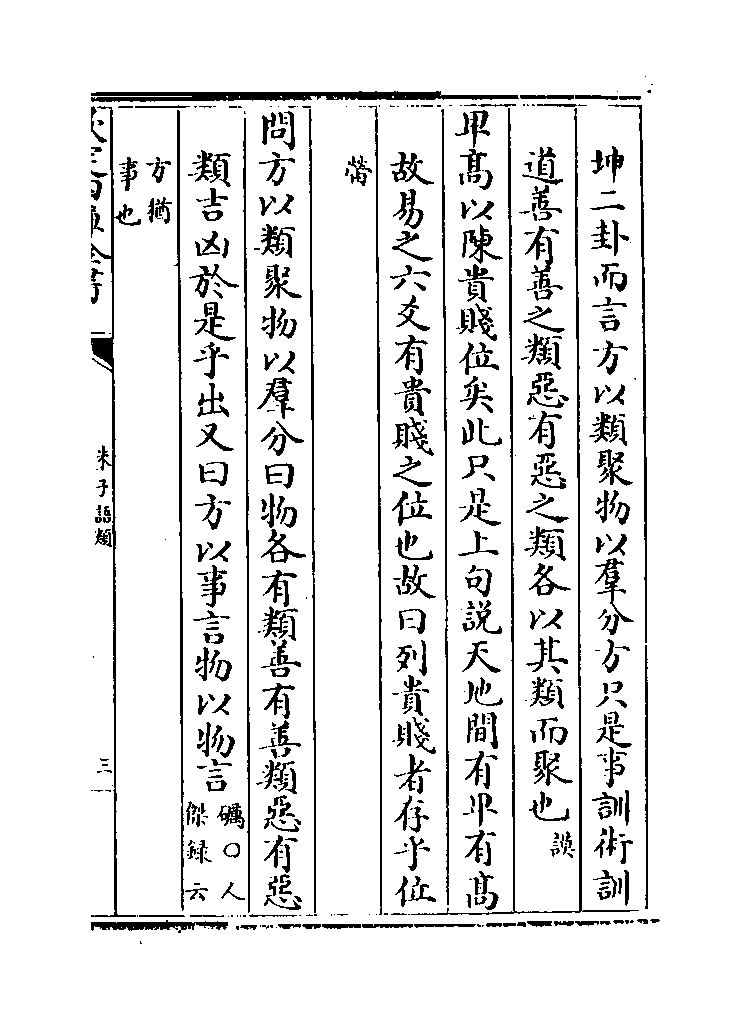 坤二卦而言方以類聚物以羣分方只是事訓術訓
道善有善之類惡有惡之類各以其類而聚也謨
卑髙以陳貴賤位矣此只是上句説天地間有卑有髙
故易之六爻有貴賤之位也故曰列貴賤者存乎位
㽦
問方以類聚物以羣分曰物各有類善有善類惡有惡
類吉凶於是乎出又曰方以事言物以物言礪○人
傑録云
方猶
事也
欽定四庫全書
朱子語類
三